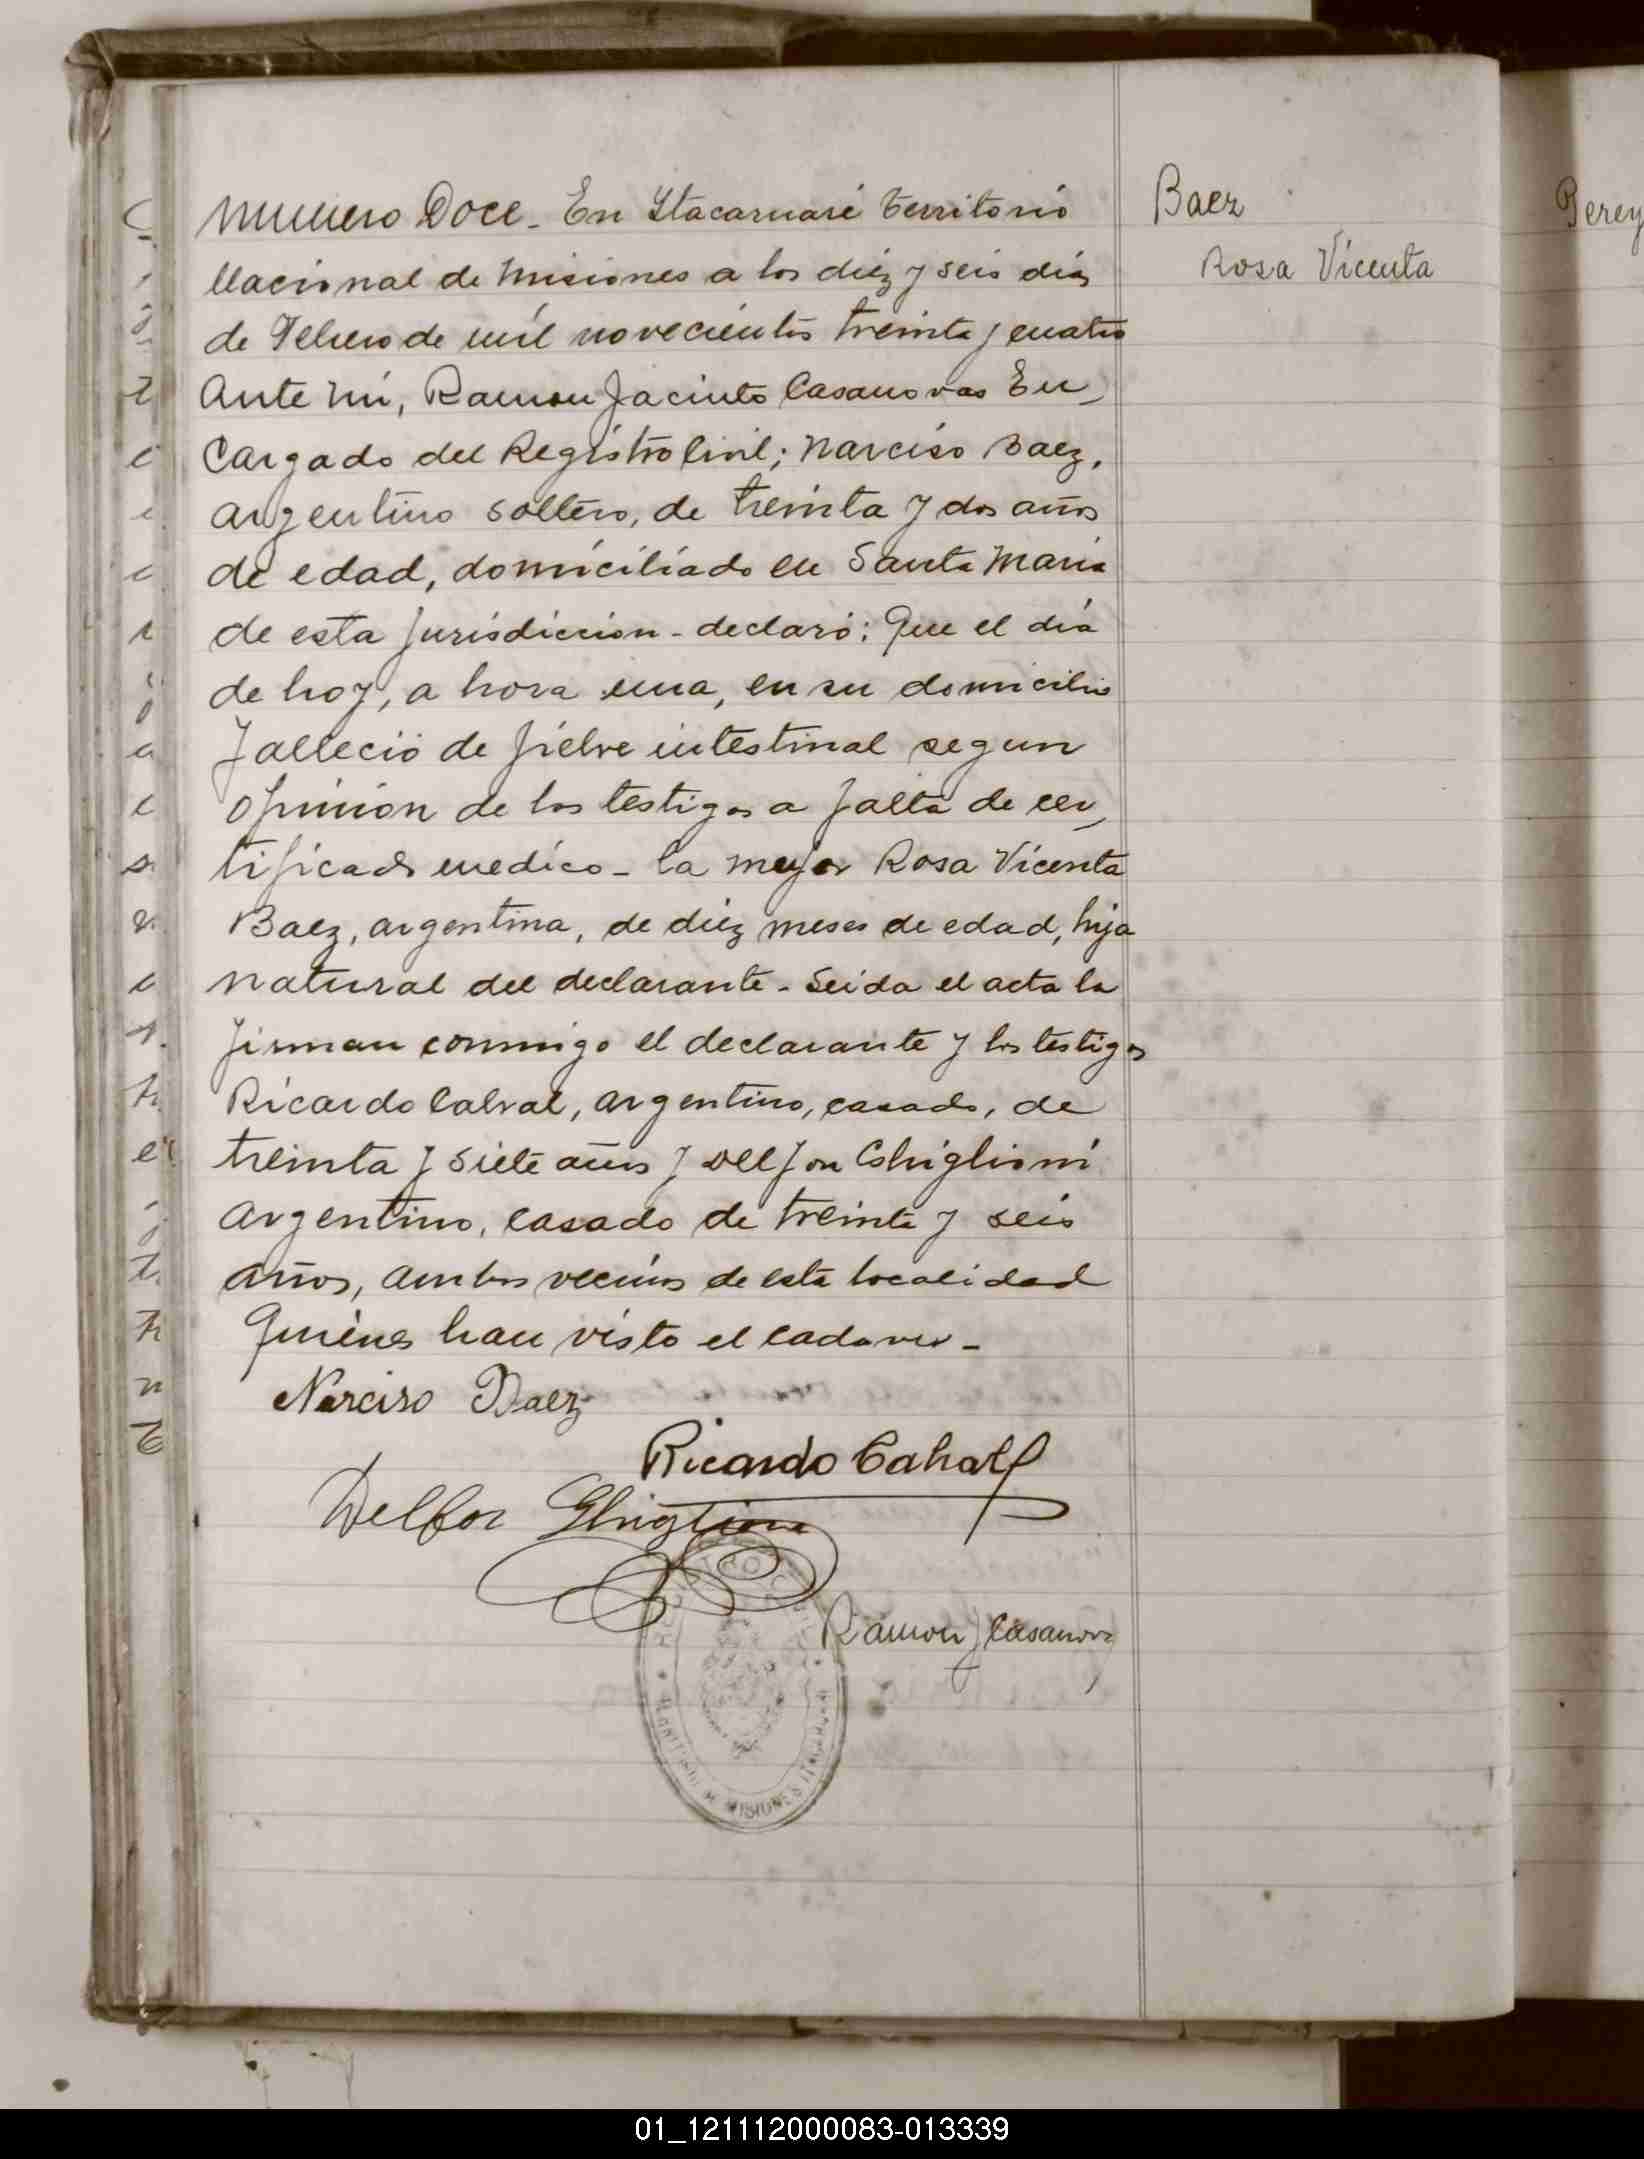 Numero Doce - En Itacaruaré Territorio
Nacional de Misiones a los diez y seis dias
de Febrero de mil novecientos treinta y cuatro
Ante mi, Ramon Jacinto Casanovas En
cargado del Registro Civil; Narciso Baez,
argentino soltero, de treinta y dos años
de edad, domiciliado en Santa Maria
de esta jurisdiccion - declaró: Que el dia
de hoy, a hora una, en su domicilio
falleció de fiebre intestinal segun
opinion de los testigos a falta de cer
tificado medico - la mujer Rosa Vicenta
Baez, argentina, de diez meses de edad, hija
natural del declarante - Leida el acta la
firman conmigo el declarante y los testigos
Ricardo Cabral, argentino, casado, de
treinta y siete años y Delfor Ghiglioni
argentino, casado de treinta y seis
años, ambos vecinos de esta localidad
quienes han visto el cadaver -
Narciso Baez
Ricardo Cabral
Delfor Ghiglioni
Ramon J Casanova
REGISTRO CIVIL
MISIONES
Baez
Rosa Vicenta
Perey
01_121112000083-013339